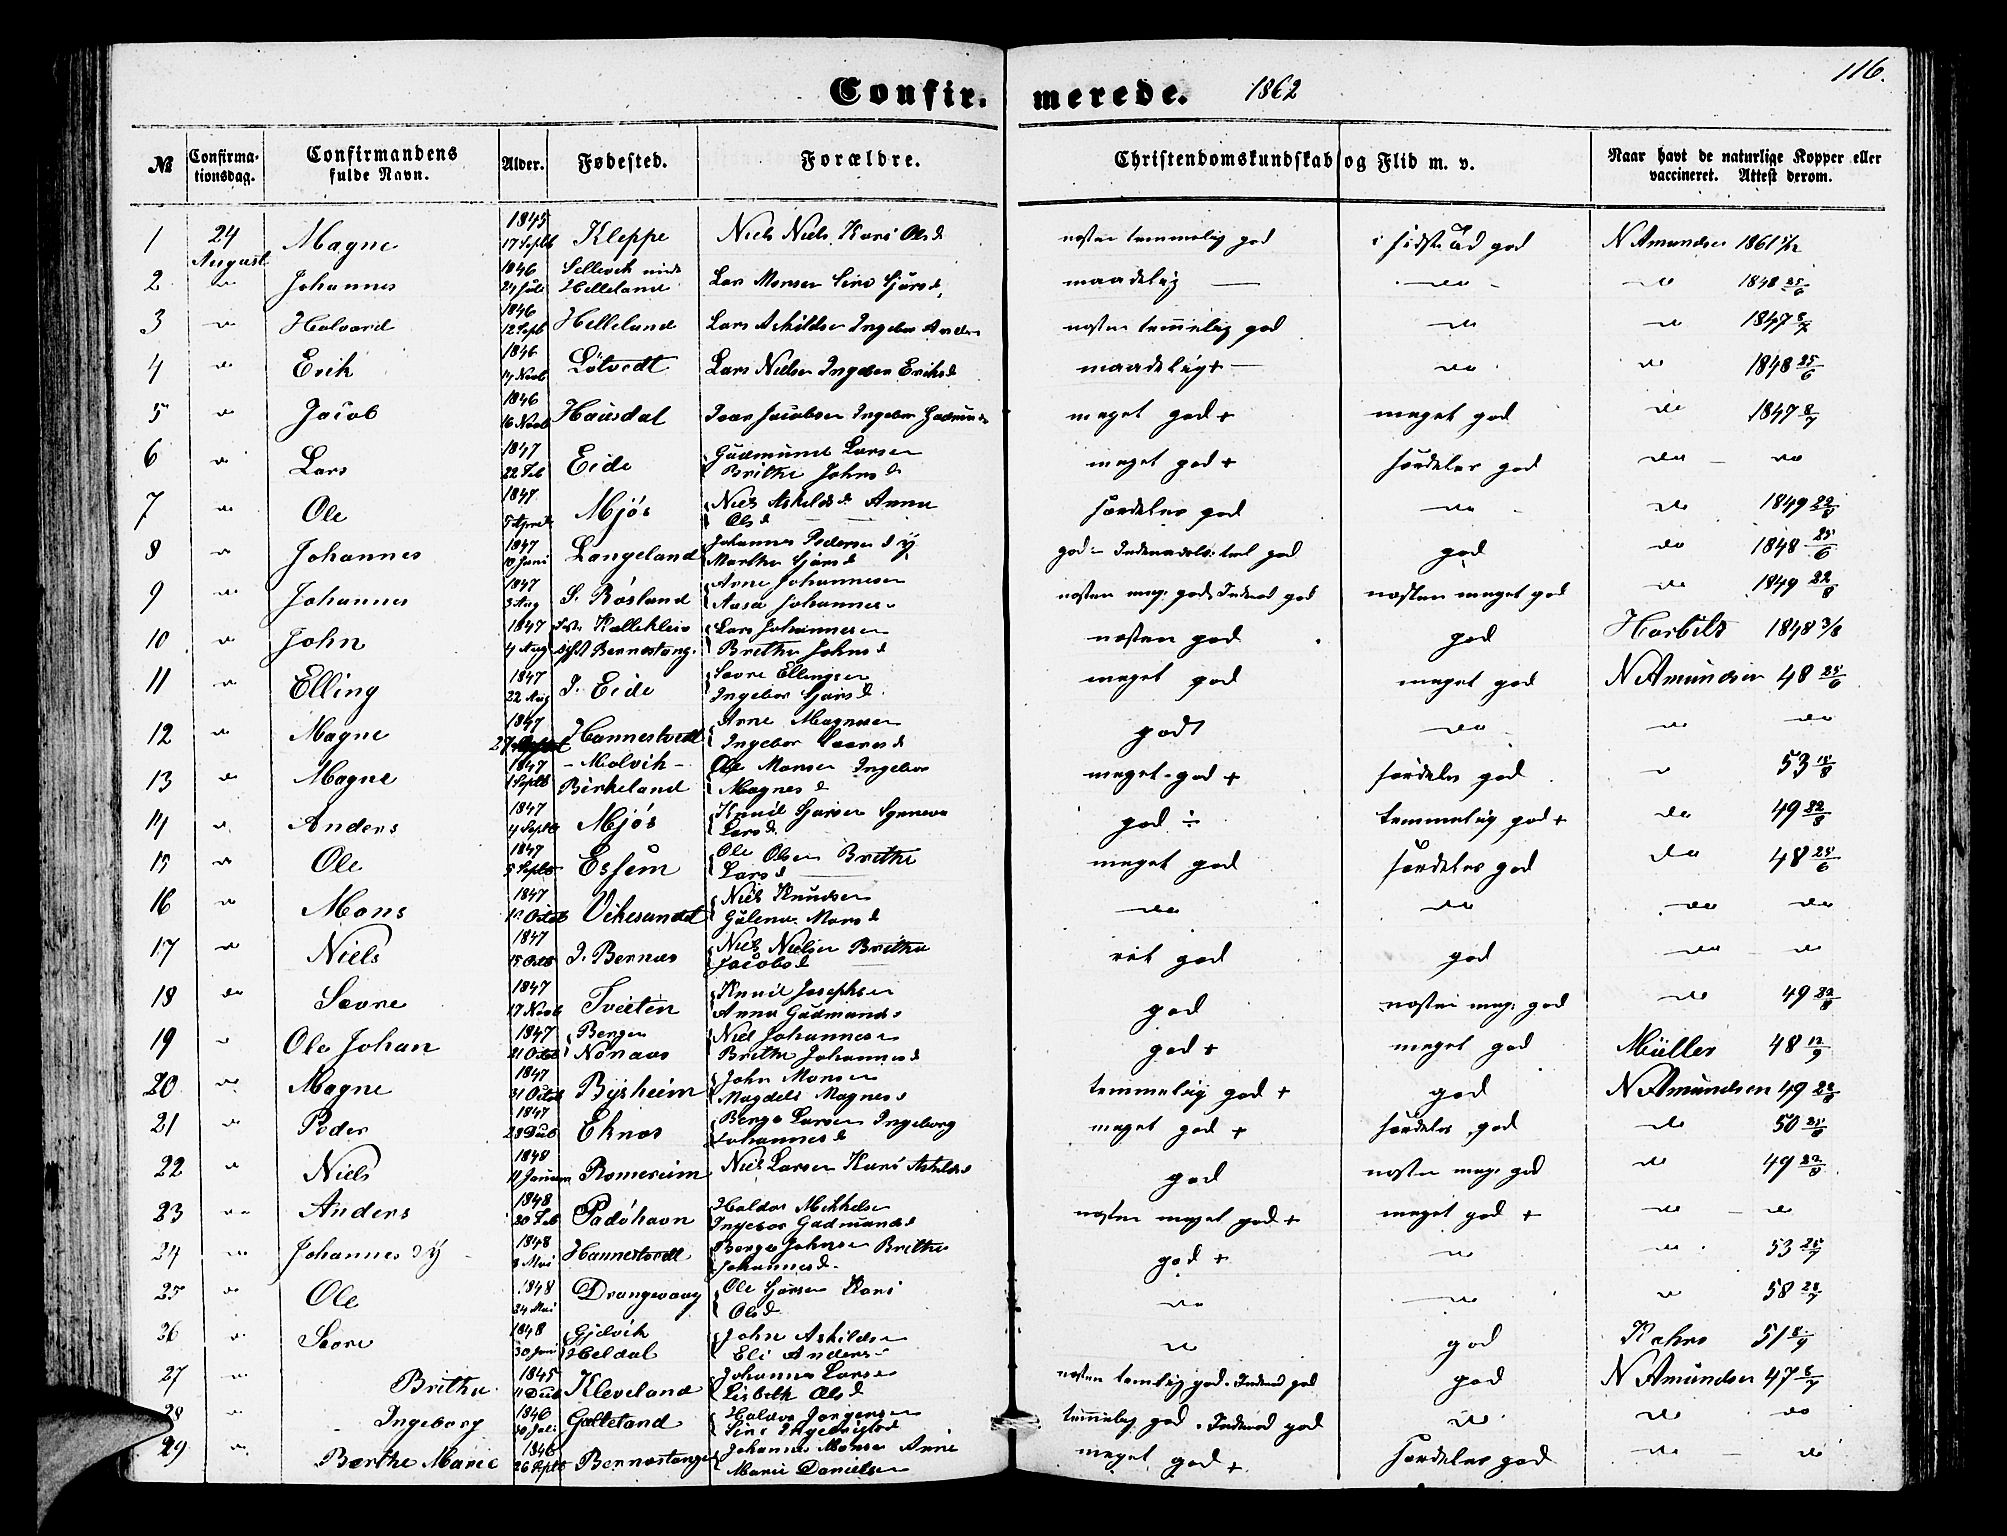 116.
Confir. merede. 1862
№ Confirma-tionsdag. Confirmandens fulde Navn. Alder. Fødested. Forældre. Christendomskundskab og Flid m. v. Naar havt de naturlige Kopper eller vaccineret. Attest derom.
1 24 August Magne 1845 17 Septb Kleppe Niels Niels. Kari Olsd næsten temmelig god god N Amundsen 1861
2 " Johannes 1846 24 Juli Helleland Lars Monsen maadelig — do 1848 25/6
3 " Halvard 1846 12 Septb Helleland Lars Askildsen Ingebor Anders næsten temmelig god do do 1847 8/7
4 " Erik 1846 14 Novb Lötvedt Lars Nielsen Ingebor Eriksd maadelig + — do do 1848 25/6
5 " Jacob 1846 16 Novb Hausdal Ivar Jacobsen Ingebor meget god + meget god do 1847 8/7
6 " Lars 1847 22 Feb Eide Gudmund Larsen Brithe Johnsd meget god + særdeles god do — do
7 " Ole 1847 5 April Mjós Niels Askilds Anna Olsd særdeles god do do 1849 22/8
8 " Johannes 1847 10 Juni Langeland Johannes Pedersen d y Marthe Sjursd god god do 1848 25/6
9 " Johannes 1847 3 Aug S. Rósland Arne Johannesen Aasa Johannes næsten meg. god. Indenad god næsten meget god do 1849 22/8
10 " John 1847 4 Aug Bernestang. Lars Johannesen Brithe Johnsd næsten god god Horbito 1848 3/8
11 " Elling 1847 22 Aug I. Eide Sevre Ellingsen Ingebor Sjursd meget god meget god N Amundsen 48 25/6
12 " Magne 1847 27 Hannestvedt Arne Magnesen Ingebor godt do do do
13 " Magne 1847 1 Septb - Molvik - Birkeland Ole Monsen Ingebor Magnesd meget god + særdeles god " 53 18/8
14 " Anders 1847 4 Septb Mjós Knud Sjursen Synneva Larsd god ÷ temmelig god + do 49 22/8
15 " Ole 1847 5 Septb Essem Ole Olsen Brithe Larsd meget god særdeles god do 48 25/6
16 " Mons 1847 Octob Vikesundet Niels Knudsen Gúlena Monsd do do do do
17 " Niels 1847 15 Octb I. Bernæs Niels Nielsen Britha Jacobsd god god do do
18 do Sevre 1847 17 Novb Tveiten Knud Josephsen Anna Gudmunds god næsten meg. god do 49 22/8
19 " Ole Johan 1847 21 Octob Bergen Nónaas Niel Johannesen Brithe Johannesd god + meget god Müller 48 12/9
20 " Magne 1847 31 Octob Bysheim John Monsen Magdeli Magnesd temmelig god + god N Amundsen 49 22/8
21 " Peder 1847 Eknæs Berge Larsen Ingeborg Johannesd meget god + særdeles god do 50
22 " Niels 1848 Januar Romereim Niels Larsen Kari Askildsd god næsten meg. god do 49 22/8
23 " Anders 1848 20 Feb Padóhavn Haldor Mikkelsen Ingebor Gudmundsd næsten meget god + meget god + do — do
24 " Johannes d y 1848 8 Mai Hannestvedt Berge Johnsen Brithe Johannesd god + do do 53 25/7
25 " Ole 1848 24 Mai Drangevaag Ole Sjursen Kari Olsd do do do 58
26 " Sevre 1848 30 Juni Gjelvik Heldal John Askildsen Eli Anders do god Rahrs 51 8/9
27 " Britha 1845 11 Kleveland Johannes Larsen Lisbeth Olsd næsten temlig god. Indenad god god N Amundsen 47 8/7
28 " Ingeborg 1846 30 Juli Galteland temmelig god. Indenad god do do do
29 " Berthe Marie 1846 26 Septb Bernestangen Johannes Monsen Anne Marie Danielsen meget god + særdeles god do — do